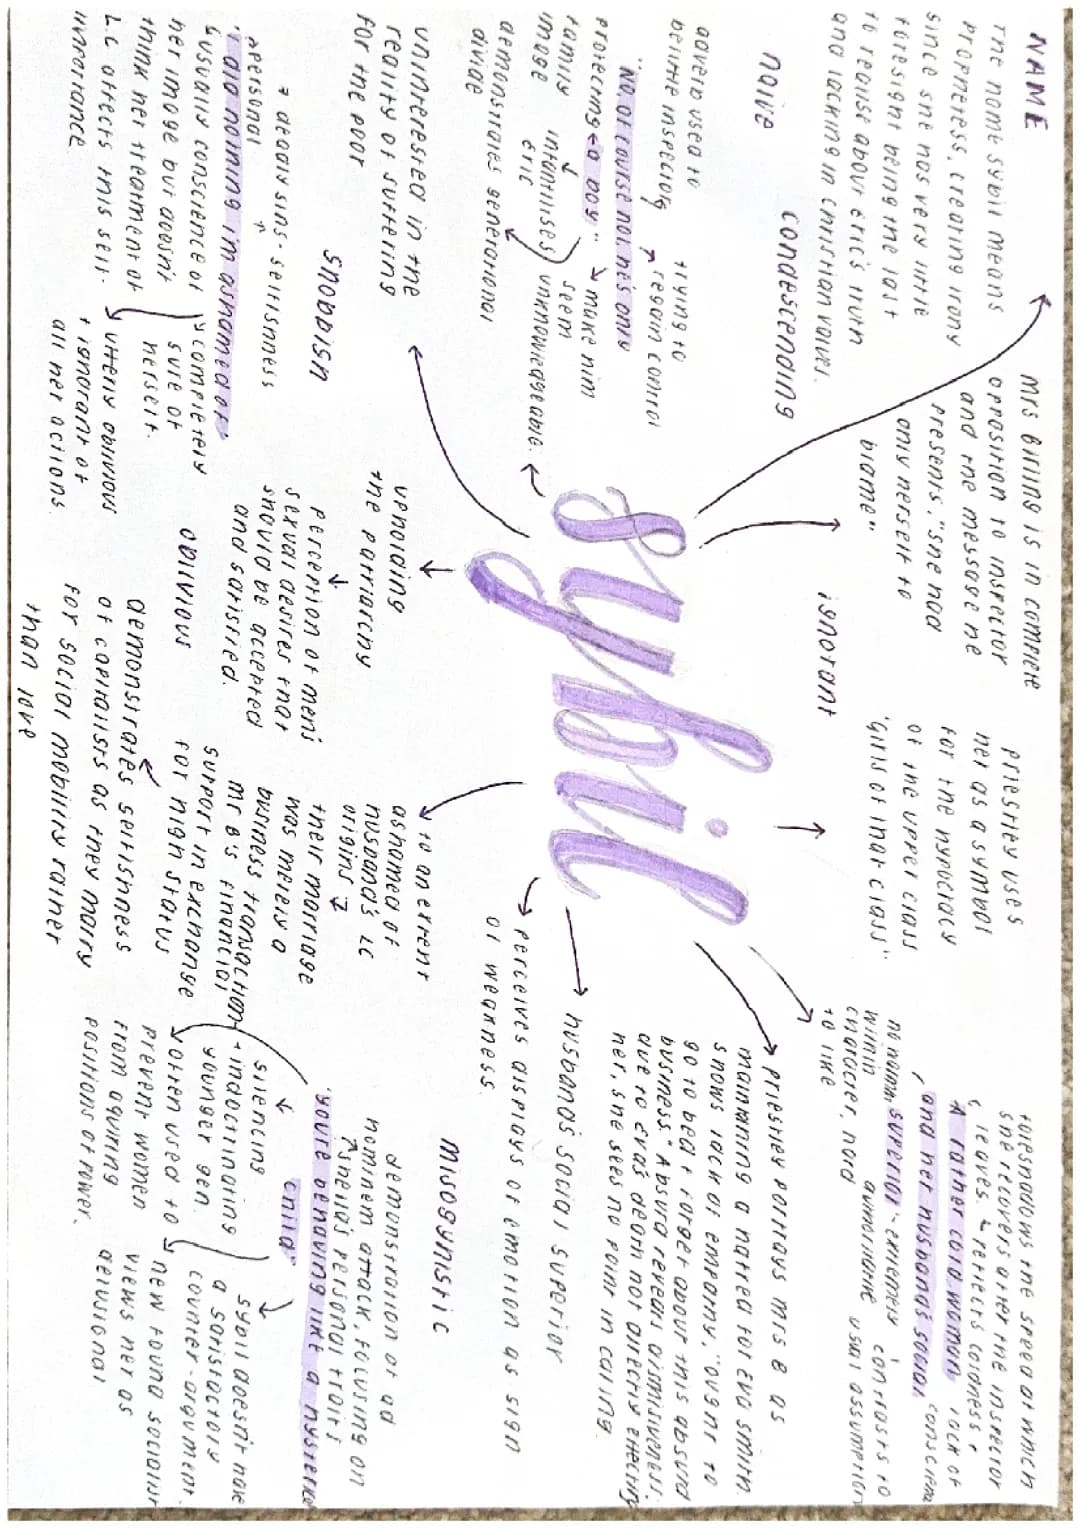 NAME
The name sybil means
prophetess, creating irony
since she has very little
foresight being the last
to realise about eric's truth
and lacking in christian values.
Mrs Birling is in complete
opposition to inspector
and the message he
presents. "she had
only herself to
blame"
priestley uses
her as a symbol
for the hypocracy
of the upper class
"girls of that class"
foreshadows the speed at which
she recovers after the inspector
leaves. reflects coldness +
lack of
conscience
"A rather cold woman
and her husband's social
superior"
no name,
within
character, hard
to like
extremely
authoritative
contrasts to
usual assumption
naive
condescending
ignorant
adverb used to
belittle inspector
trying to
regain control
"No, of course not. he's only
a boy"
protecting
family
image
infantilises
eric
make him
seem
unknowledgeable.
demonstrates generational
divide
sybil
priestley portrays mrs B as
maintaining a hatred for eva smith.
shows lack of empathy, "ought to
go to bed + forget about this absurd
business." Absurd reveals dismissiveness.
due to eva's death not directly effecting
her, she sees no point in caring.
husband's social superior
perceives displays of emotion as sign
of weakness.
uninterested in the
reality of suffering
for the poor
snobbish
venolding
the patriarchy
perception of mens'
sexual desires that
should be accepted
and satisfied.
oblivious
to an extent
ashamed of
husband's lc
origins
their marriage
was merely a
business transaction
mr B's financial
support in exchange
for high status
demonstrates selfishness
of capitalists as they marry
for social mobility rather
than love
deadly sins - selfishness
personal
"I did nothing i'm ashamed of"
usually conscience of
her image but doesn't
think her treatment of
L.C affects this self-
ignorance
completely
sure of
herself.
utterly oblivious
+ ignorant of
all her actions.
misogynistic
demonstration of ad
hominem attack, focusing on
sheila's personal traits
"you're behaving like a hysterical
child"
silencing
+ indoctrinating
younger gen.
often used to
prevent women
from aquiring
positions of power.
sybil doesn't have
a satisfactory
counter-argument.
new found socialist
views her as
delusional